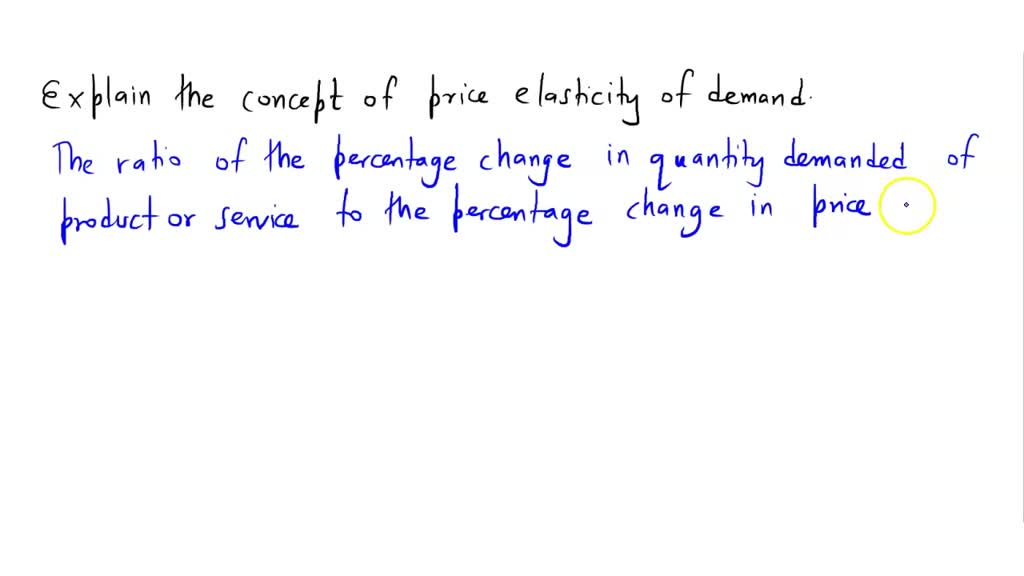 Explain the concept of price elasticity of demand.
The ratio of the percentage change in quantity demanded of
product or service to the percentage change in price